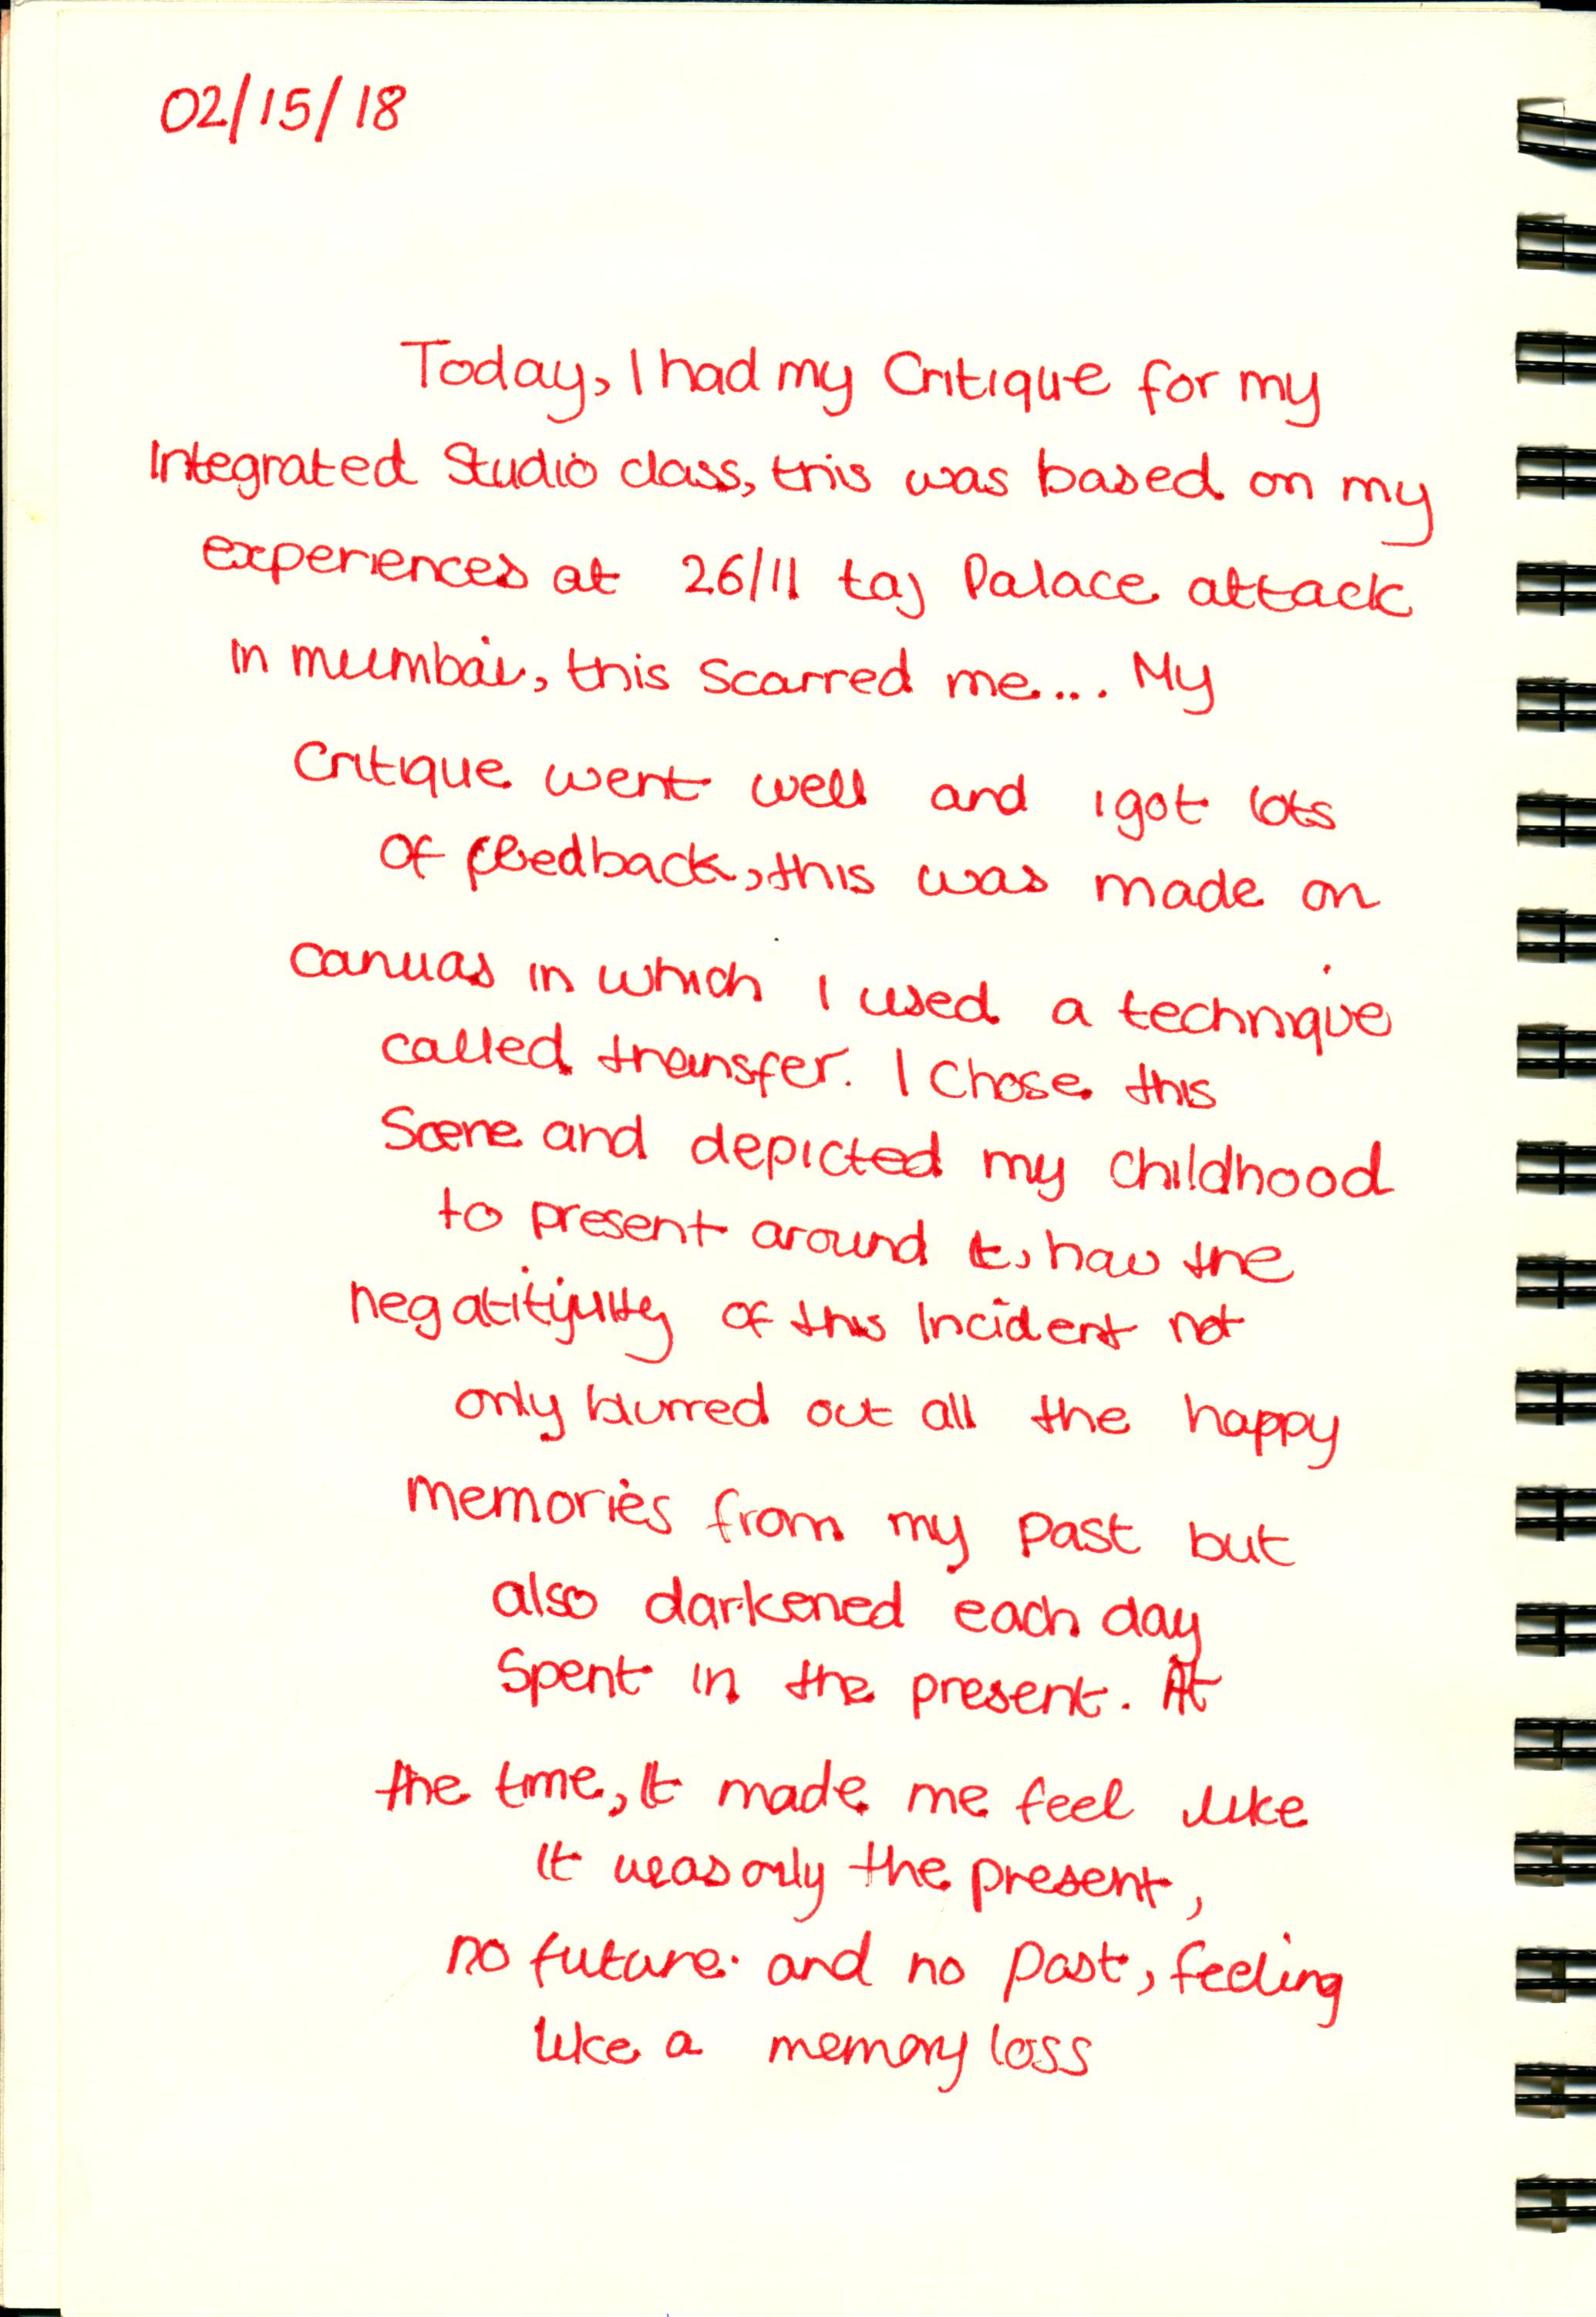 02/15/18
Today, I had my Critique for my
Integrated Studio class, this was based on my
experiences at 26/11 taj Palace attack
in mumbai, this Scarred me.... My
Critique went well and i got lots
of feedback, this was made on
canvas in which I used a technique
called transfer. I Chose this
Scene and depicted my Childhood
to present around it, how the
of this Incident not
only blurred out all the happy
memories from my past but
also darkened each day
Spent in the present. At
the time, It made me feel like
It was only the present,
no future and no Past, feeling
like a memory loss